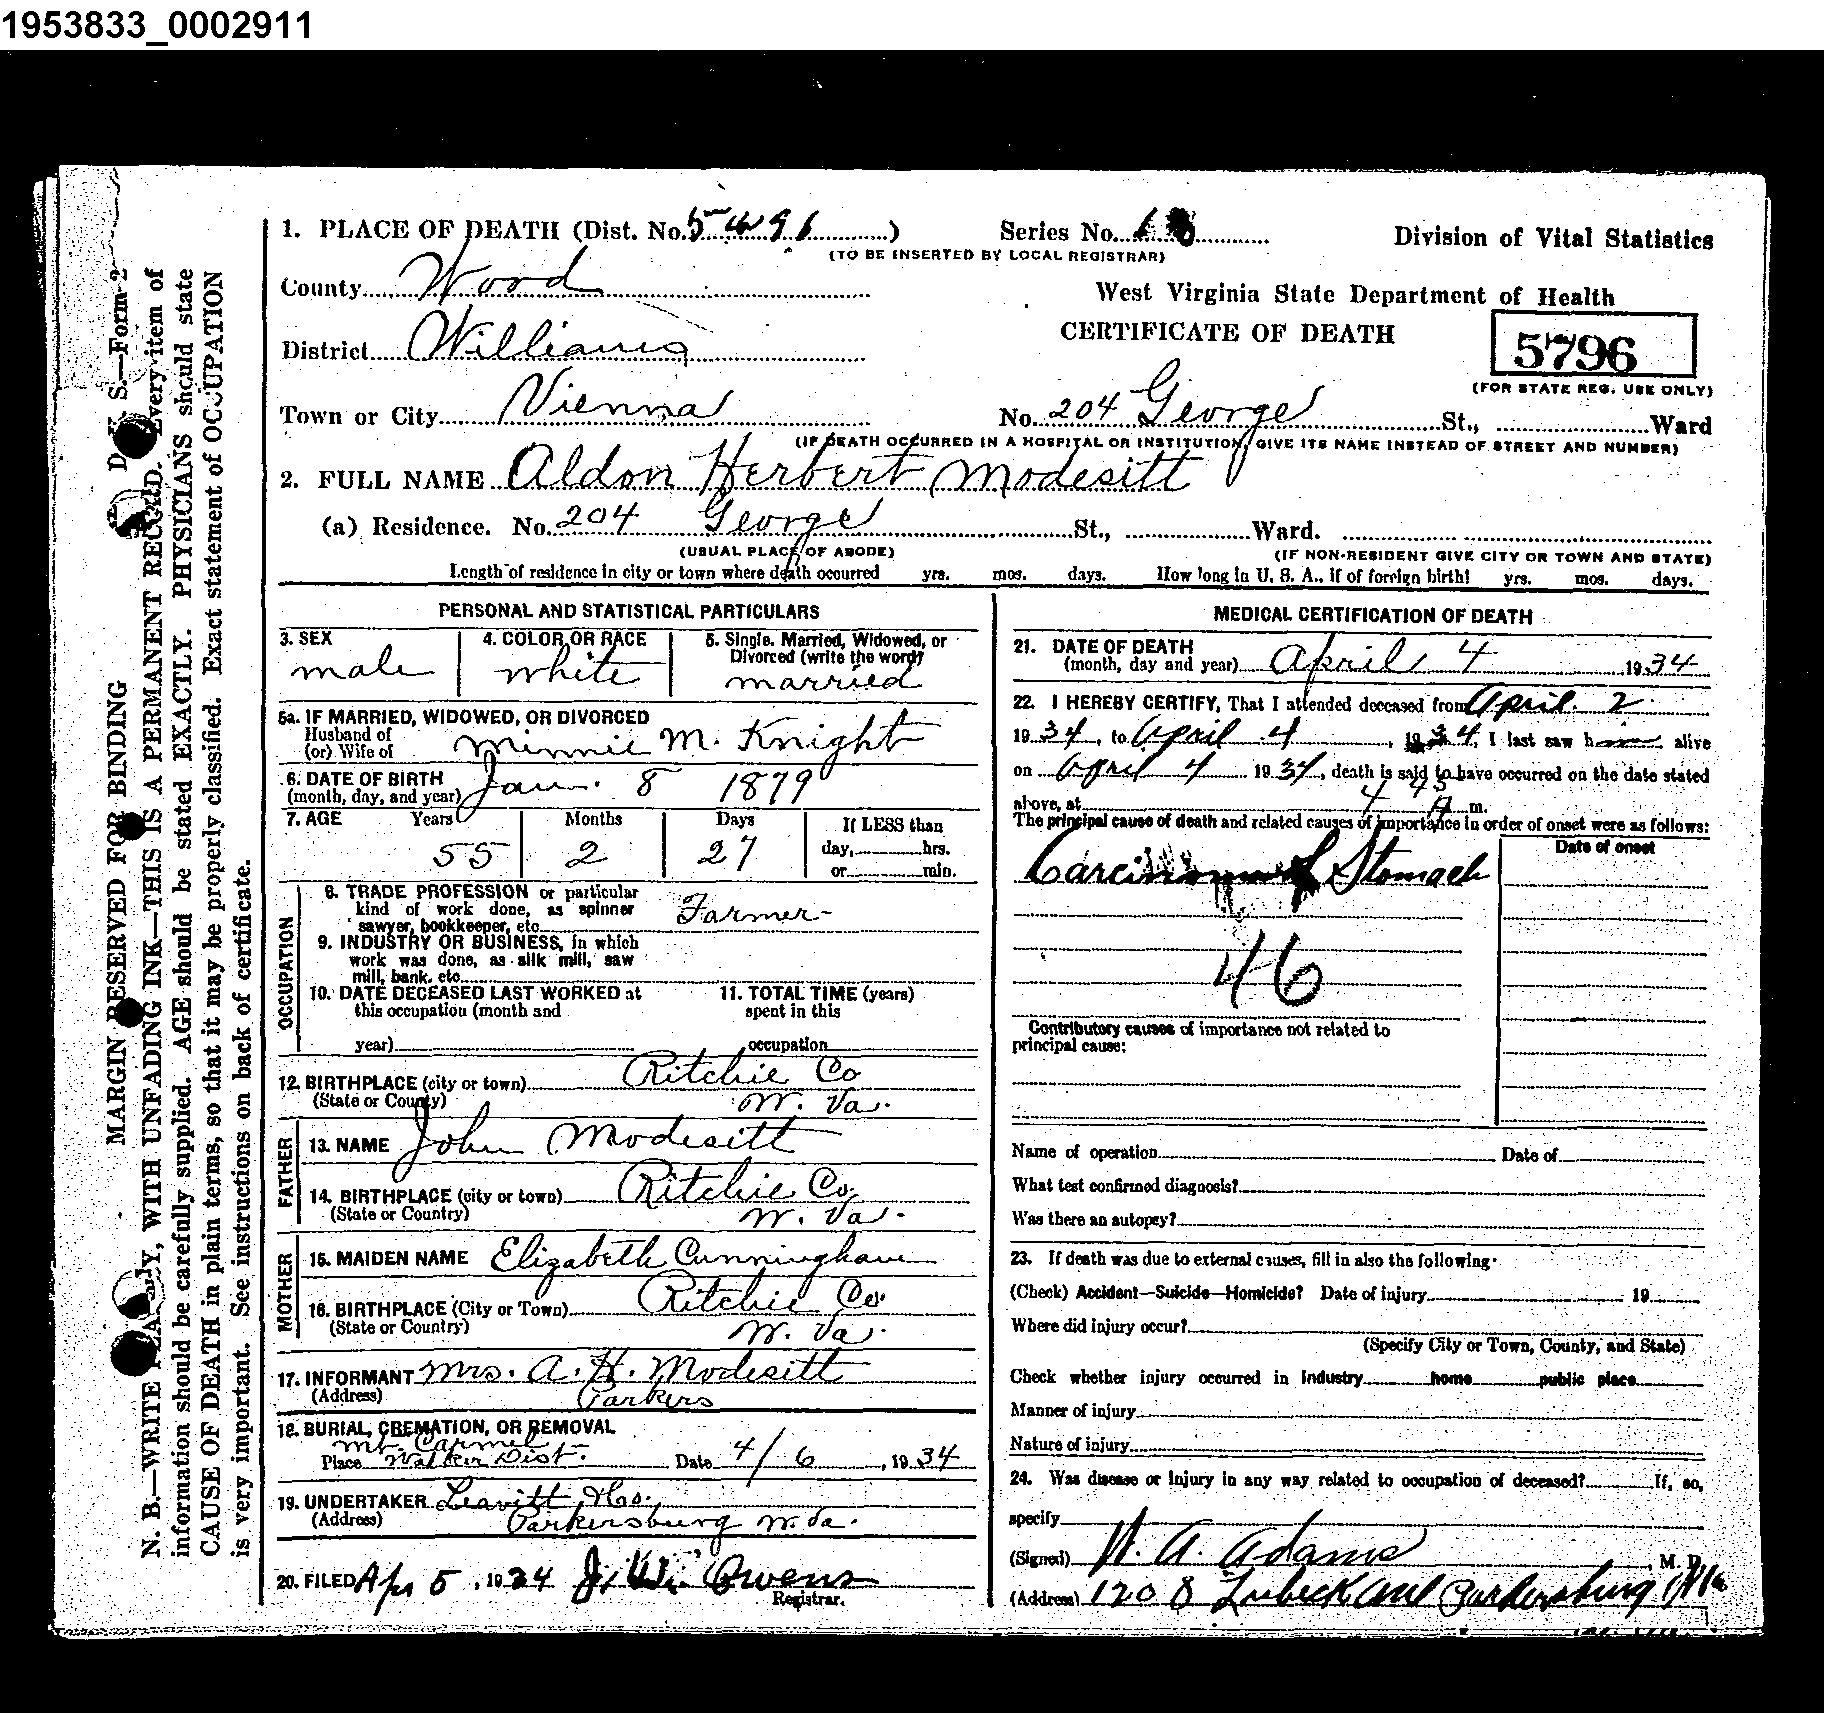 1953833_0002911
1. PLACE OF DEATH (Dist. No. 5491)
Series No. 18
(TO BE INSERTED BY LOCAL REGISTRAR)
Division of Vital Statistics
County Wood
West Virginia State Department of Health
CERTIFICATE OF DEATH
5796
(FOR STATE REG. USE ONLY)
District Williams
Town or City Vienna No. 204 George St., Ward
(IF DEATH OCCURRED IN A HOSPITAL OR INSTITUTION, GIVE ITS NAME INSTEAD OF STREET AND NUMBER)
2. FULL NAME Aldon Herbert Modesitt
(a) Residence. No. 204 George St., Ward.
(USUAL PLACE OF ABODE) (IF NON-RESIDENT GIVE CITY OR TOWN AND STATE)
Length of residence in city or town where death occurred yrs. mos. days. How long in U. S. A., if of foreign birth? yrs. mos. days.
PERSONAL AND STATISTICAL PARTICULARS
3. SEX 4. COLOR OR RACE 5. Single, Married, Widowed, or
Divorced (write the word)
male white married
5a. IF MARRIED, WIDOWED, OR DIVORCED
Husband of
(or) Wife of Minnie M. Knight
6. DATE OF BIRTH
(month, day, and year) Jan. 8 1879
7. AGE Years Months Days If LESS than
55 2 27 day, hrs.
or min.
OCCUPATION
8. TRADE PROFESSION or particular
kind of work done, as spinner
sawyer, bookkeeper, etc. Farmer
9. INDUSTRY OR BUSINESS, in which
work was done, as silk mill, saw
mill, bank, etc.
10. DATE DECEASED LAST WORKED at
this occupation (month and
year)
11. TOTAL TIME (years)
spent in this
occupation
12. BIRTHPLACE (city or town) Ritchie Co
(State or County) W. Va.
FATHER
13. NAME John Modesitt
14. BIRTHPLACE (city or town) Ritchie Co
(State or Country) W. Va.
MOTHER
15. MAIDEN NAME Elizabeth Cunningham
16. BIRTHPLACE (City or Town) Ritchie Co
(State or Country) W. Va.
17. INFORMANT Mrs. A. H. Modesitt
(Address) Parkers
18. BURIAL, CREMATION, OR REMOVAL
Mt. Carmel
Place Walker Dist. Date 4/6, 1934
19. UNDERTAKER Leavitt & Co.
(Address) Parkersburg W. Va.
20. FILED Apr 5, 1934 J. W. Owens
Registrar.
MEDICAL CERTIFICATION OF DEATH
21. DATE OF DEATH
(month, day and year) April 4 1934
22. I HEREBY CERTIFY, That I attended deceased from April 2
1934, to April 4, 1934, I last saw him alive
on April 4 1934, death is said to have occurred on the date stated
above, at 4 45 A m.
The principal cause of death and related causes of importance in order of onset were as follows:
Date of onset
Carcinoma of Stomach
46
Contributory causes of importance not related to
principal cause:
Name of operation Date of
What test confirmed diagnosis?
Was there an autopsy?
23. If death was due to external causes, fill in also the following:
(Check) Accident—Suicide—Homicide? Date of injury 19
Where did injury occur?
(Specify City or Town, County, and State)
Check whether injury occurred in Industry home public place
Manner of injury
Nature of injury
24. Was disease or injury in any way related to occupation of deceased? If, so,
specify
(Signed) W. A. Adams, M. D.
(Address) 1208 Lubeck Ave Parkersburg W Va
MARGIN RESERVED FOR BINDING
S.—Form-2
N. B.—WRITE PLAINLY, WITH UNFADING INK—THIS IS A PERMANENT RECORD. Every item of
information should be carefully supplied. AGE should be stated EXACTLY. PHYSICIANS should state
CAUSE OF DEATH in plain terms, so that it may be properly classified. Exact statement of OCCUPATION
is very important. See instructions on back of certificate.